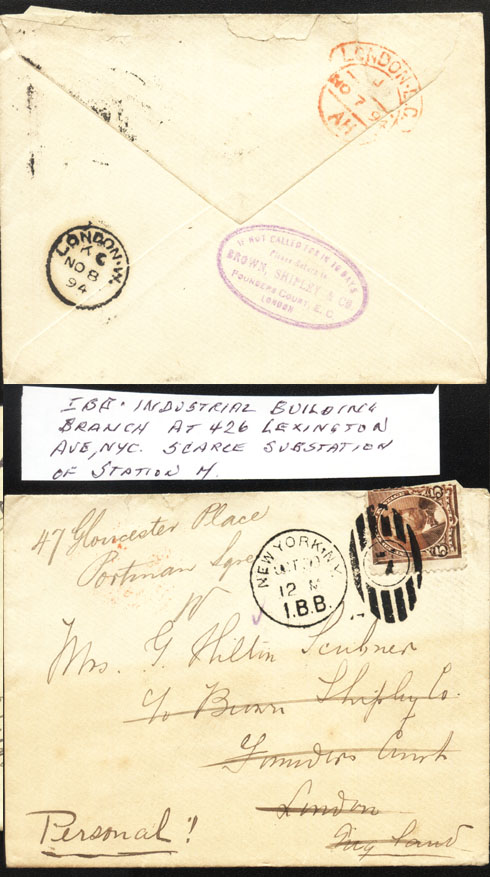 LONDON. E.C.
NO 7 94
AH
LONDON. W.
NO 8
94
IF NOT CALLED FOR IN 10 DAYS
Please deliver to
BROWN, SHIPLEY & CO
FOUNDERS COURT, E.C.
LONDON
IBB. INDUSTRIAL BUILDING
BRANCH AT 426 LEXINGTON
AVE, NYC. SCARCE SUBSTATION
OF STATION H.
47 Gloucester Place
Portman Sqre
W
NEW YORK, N.Y.
12 M
I.B.B.
Mrs. G. Hilton Scribner
c/o Brown Shipley Co.
Founders Court
London
England
Personal!